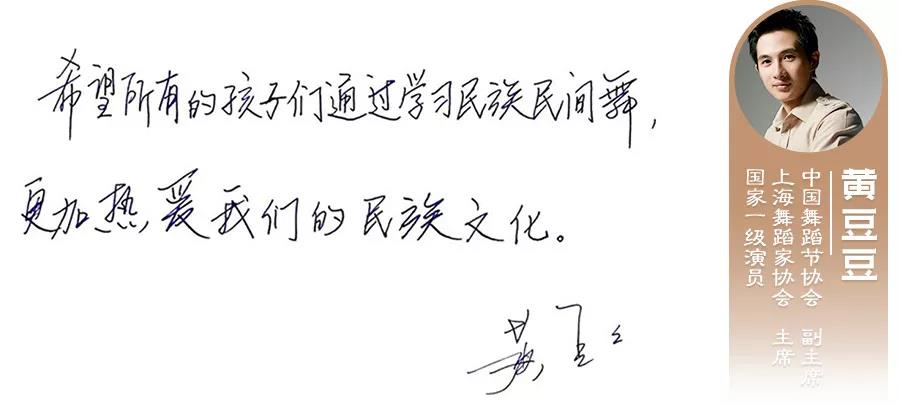 希望所有的孩子们通过学习民族民间舞，
更加热爱我们的民族文化。
黄豆豆
黄豆豆
中国舞蹈节协会 副主席
上海舞蹈家协会 主席
国家一级演员